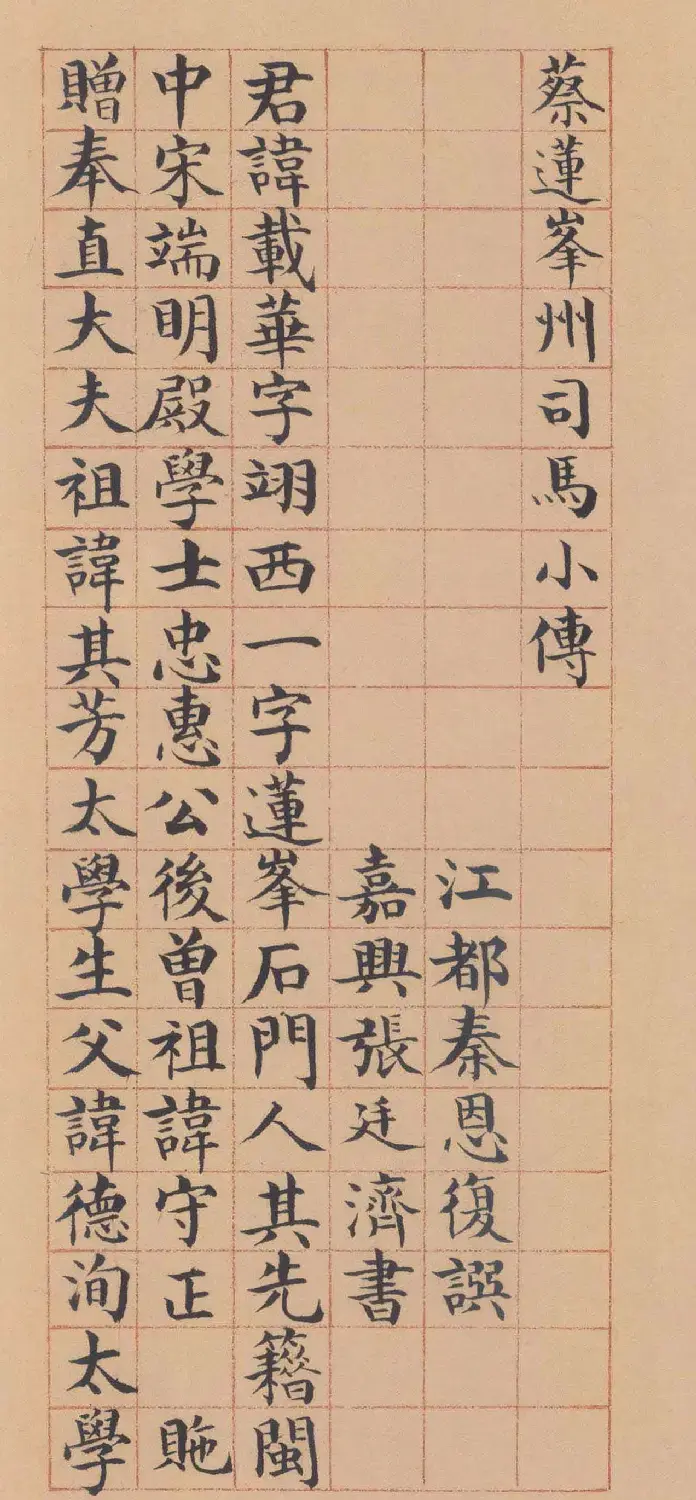 蔡蓮峯州司馬小傳
江都秦恩復譔
嘉興張廷濟書
君諱載華字翊西一字蓮峯石門人其先籍閩
中宋端明殿學士忠惠公後曾祖諱守正 貤
贈奉直大夫祖諱其芳太學生父諱德洵太學